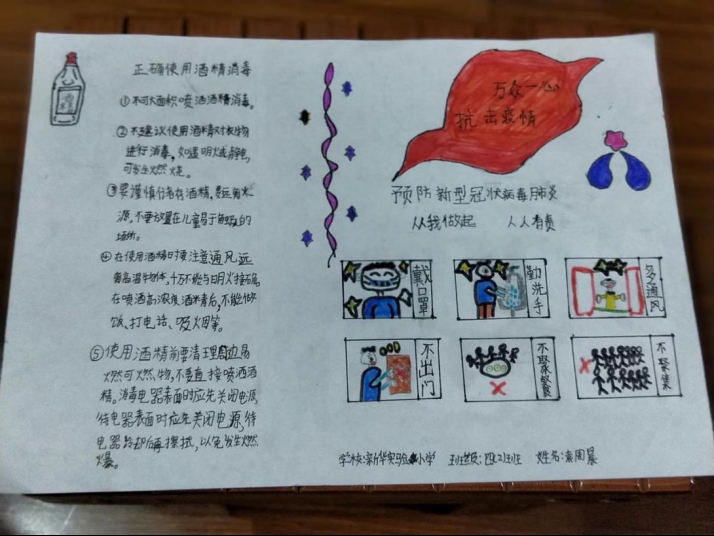 正确使用酒精消毒
①不可大面积喷洒酒精消毒。
②不建议使用酒精对衣物
进行消毒，如遇明火或静电，
可发生燃烧。
③要谨慎存在酒精，要远离火
源，不要放置在儿童易于触取的
场所。
④在使用酒精时要注意通风远
离高温物体，千万不能与明火接触，
在喷洒高浓度酒精后，不能做
饭、打电话、吸烟等。
⑤使用酒精前要清理周边易
燃可燃物，不要直接喷洒酒
精。消毒电器表面时应先关闭电源，
待电器表面时应先关闭电源，待
电器冷却后再擦拭，以免发生燃
爆。
酒精
万众一心
抗击疫情
预防新型冠状病毒肺炎
从我做起 人人有责
戴口罩
勤洗手
多通风
不出门
不聚餐
不聚集
学校:新华实验小学 班级:四(2)班 姓名:周晨